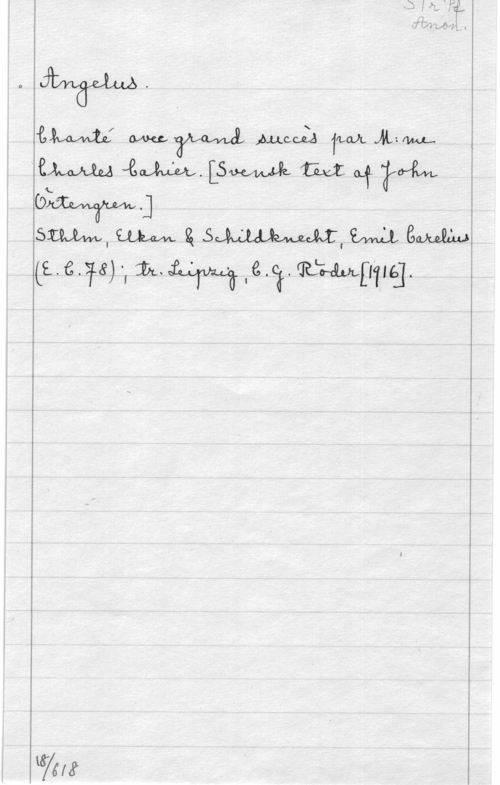 Anon.
Angelus.
Chanté avec grand succès par M:me
Charles Cahier. [Svensk text af John
Örtengren.]
Sthlm, Elkan & Schildknecht, Emil Carelius
(E.C.78); tr. Leipzig, C.G. Röder [1916].
18/618